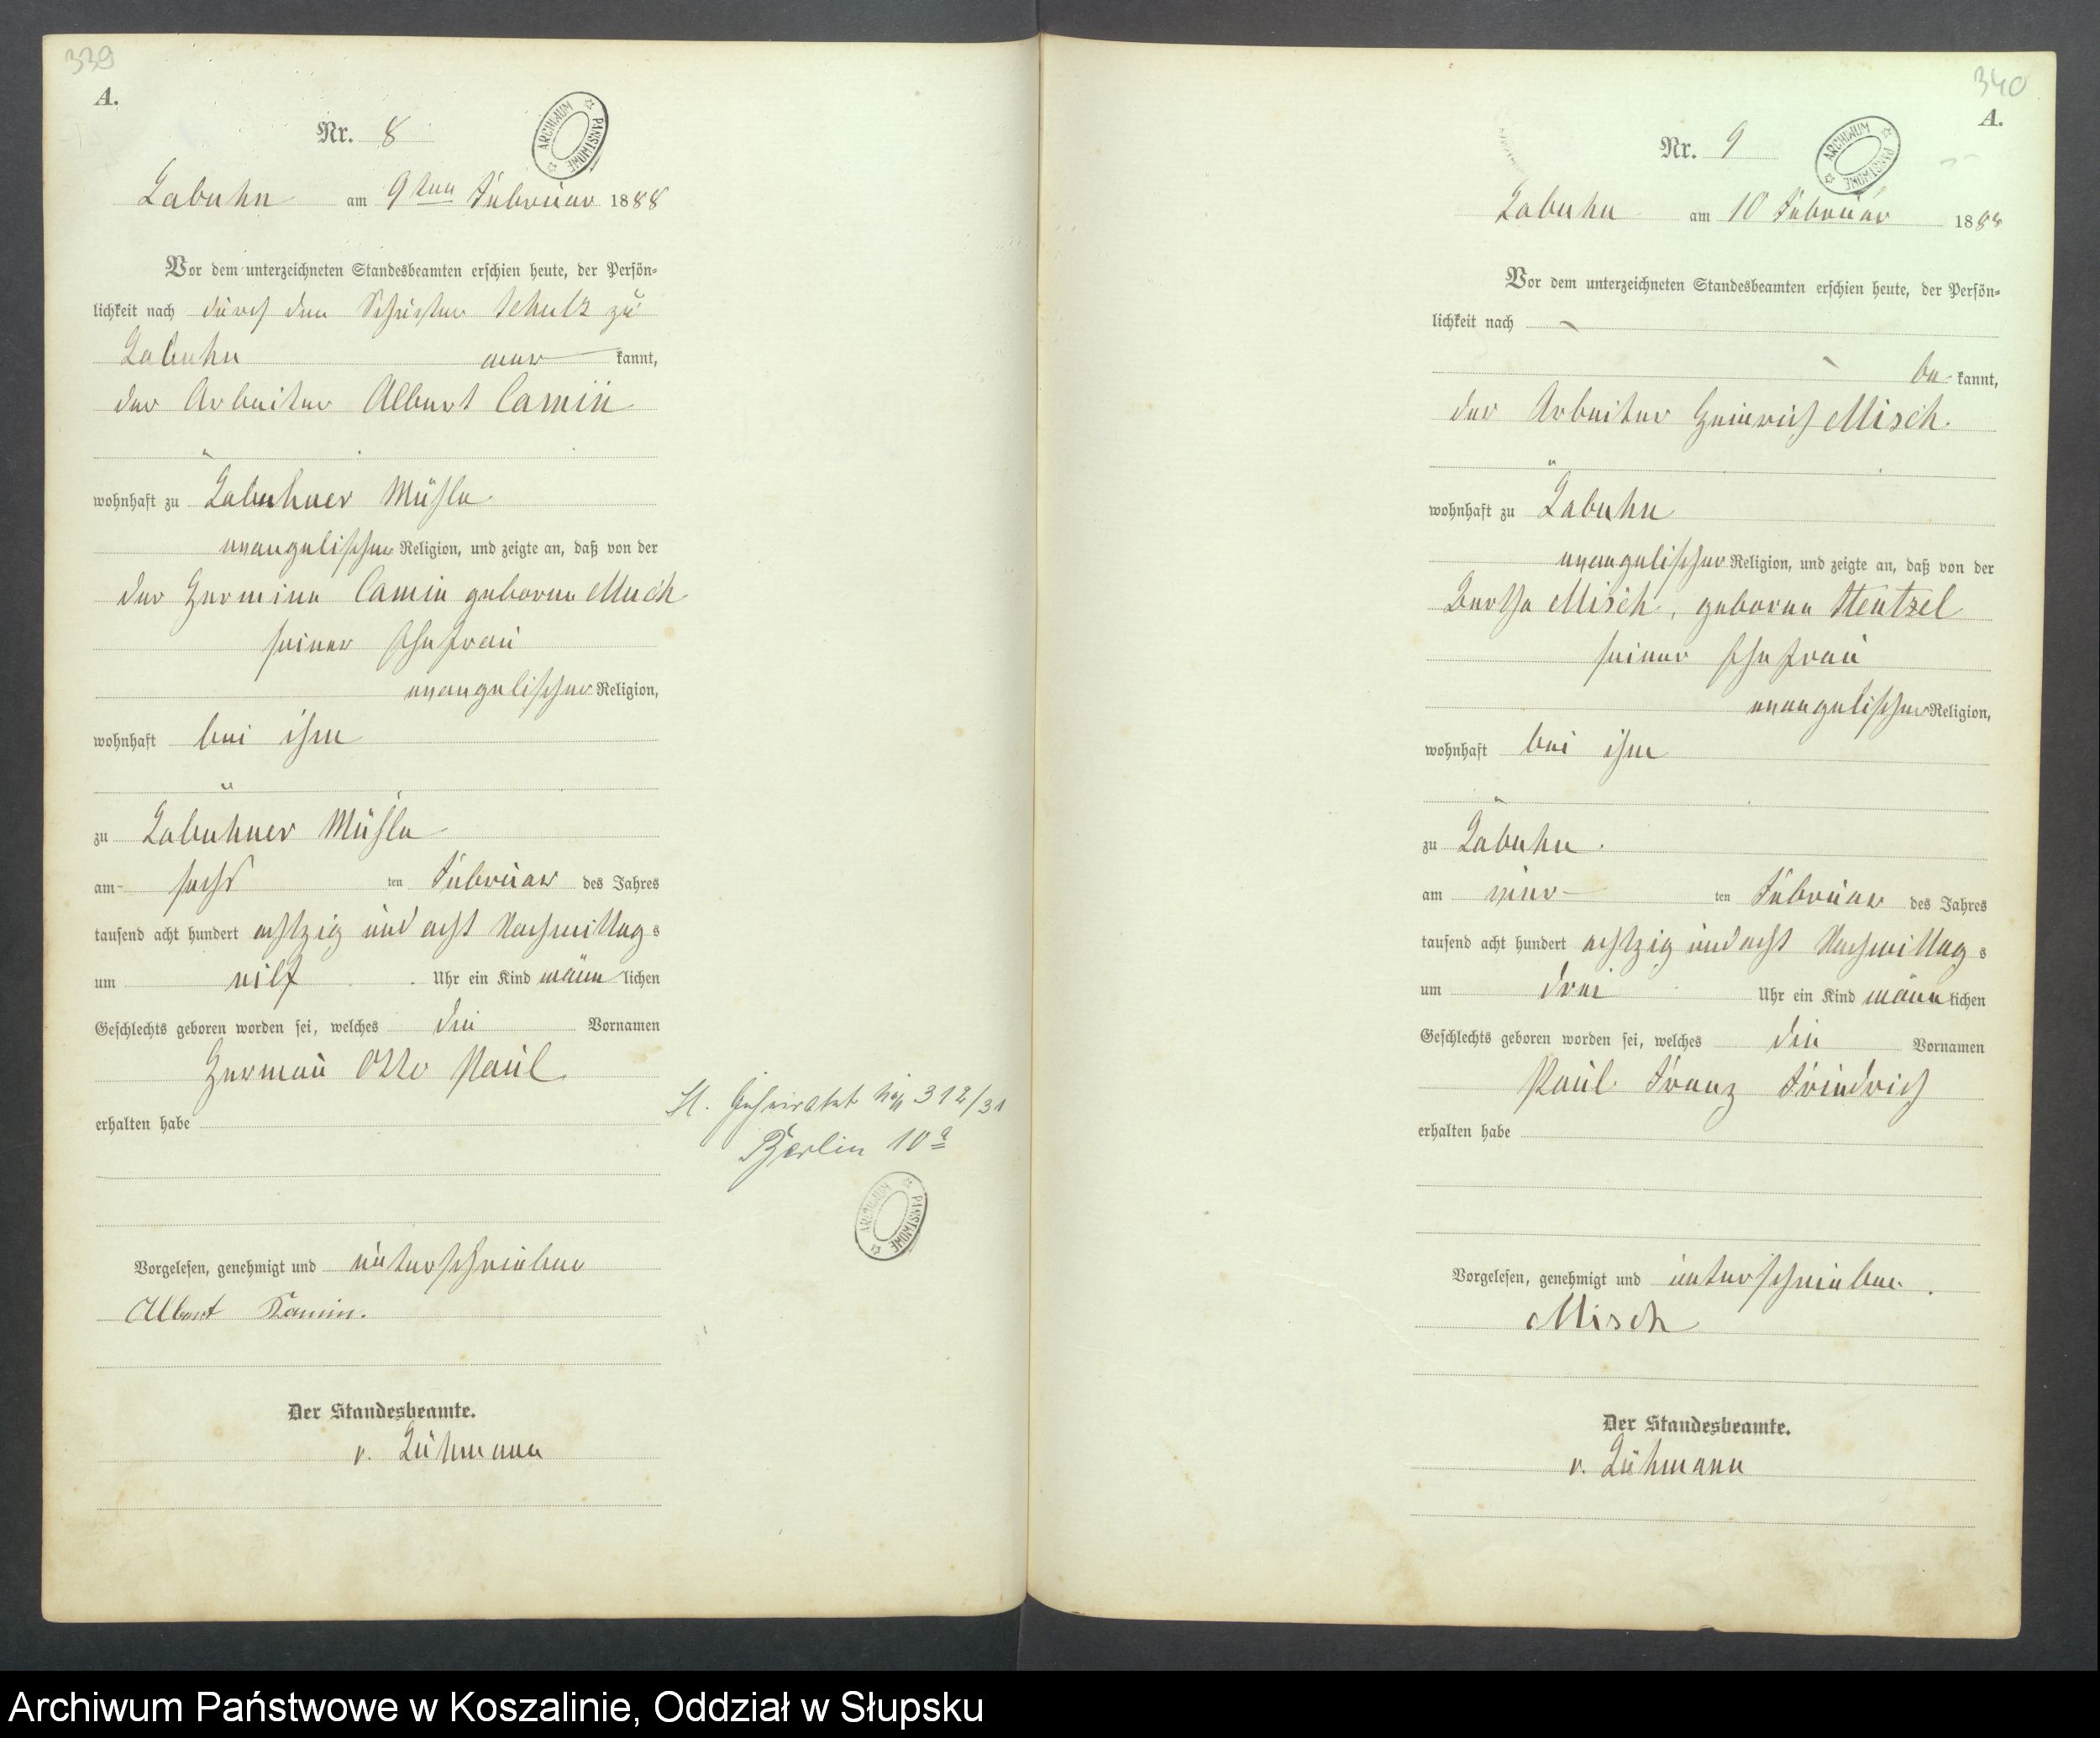 339
A.
Nr. 8
ARCHIWUM PAŃSTWOWE
Labuhn am 9ten Februar 1888
Vor dem unterzeichneten Standesbeamten erschien heute, der Persön-
lichkeit nach durch den Schuster Schulz zu
Labuhn aner kannt,
der Arbeiter Albert Camin
wohnhaft zu Labuhner Mühle
evangelischer Religion, und zeigte an, daß von der
der Hermine Camin geborene Much
seiner Ehefrau
evangelischer Religion,
wohnhaft bei ihm
zu Labuhner Mühle
am sechs ten Februar des Jahres
tausend acht hundert achtzig und acht Nachmittag s
um elf Uhr ein Kind männ lichen
Geschlechts geboren worden sei, welches die Vornamen
Herman Otto Paul
erhalten habe
H. Geheiratet Nr. 312/31
Berlin 10a
ARCHIWUM PAŃSTWOWE
Vorgelesen, genehmigt und unterschrieben
Albert Kamin.
Der Standesbeamte.
v. Lühmann
340
A.
Nr. 9
ARCHIWUM PAŃSTWOWE
Labuhn am 10 Februar 1888
Vor dem unterzeichneten Standesbeamten erschien heute, der Persön-
lichkeit nach
be- kannt,
der Arbeiter Heinrich Misch.
wohnhaft zu Labuhn
evangelischer Religion, und zeigte an, daß von der
Bertha Misch, geborene Hentzel
seiner Ehefrau
evangelischer Religion,
wohnhaft bei ihm
zu Labuhn.
am vier ten Februar des Jahres
tausend acht hundert achtzig und acht Nachmittag s
um drei Uhr ein Kind männ lichen
Geschlechts geboren worden sei, welches die Vornamen
Paul Franz Friedrich
erhalten habe
Vorgelesen, genehmigt und unterschrieben.
Misch
Der Standesbeamte.
v. Lühmann
Archiwum Państwowe w Koszalinie, Oddział w Słupsku